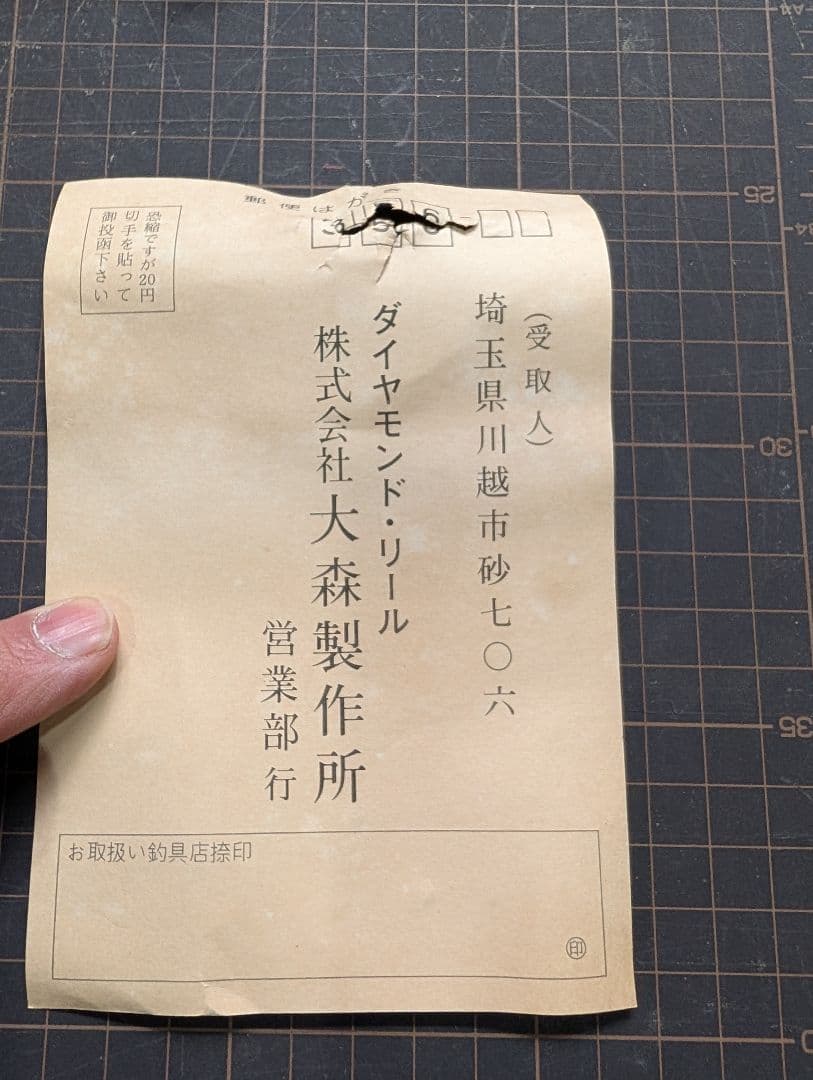 郵便はがき
恐縮ですが20円
切手を貼って
御投函下さい
（受取人）
埼玉県川越市砂七〇六
ダイヤモンド・リール
株式会社大森製作所
営業部行
お取扱い釣具店捺印
㊞
25
30
35